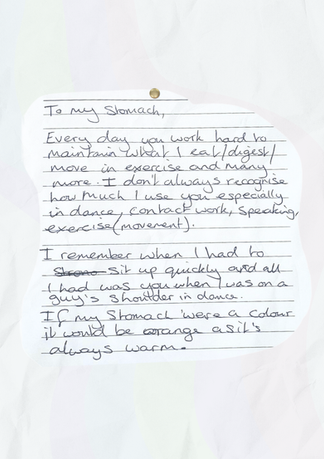 To my Stomach,
Every day you work hard to
maintain what I eat/digest/
move in exercise and many
more. I don't always recognise
how much I use you especially
in dance, contact work, speaking,
exercise (movement).
I remember when I had to
sit up quickly and all
I had was you when I was on a
guy's shoulder in dance.
If my stomach were a colour
it would be orange as it's
always warm.